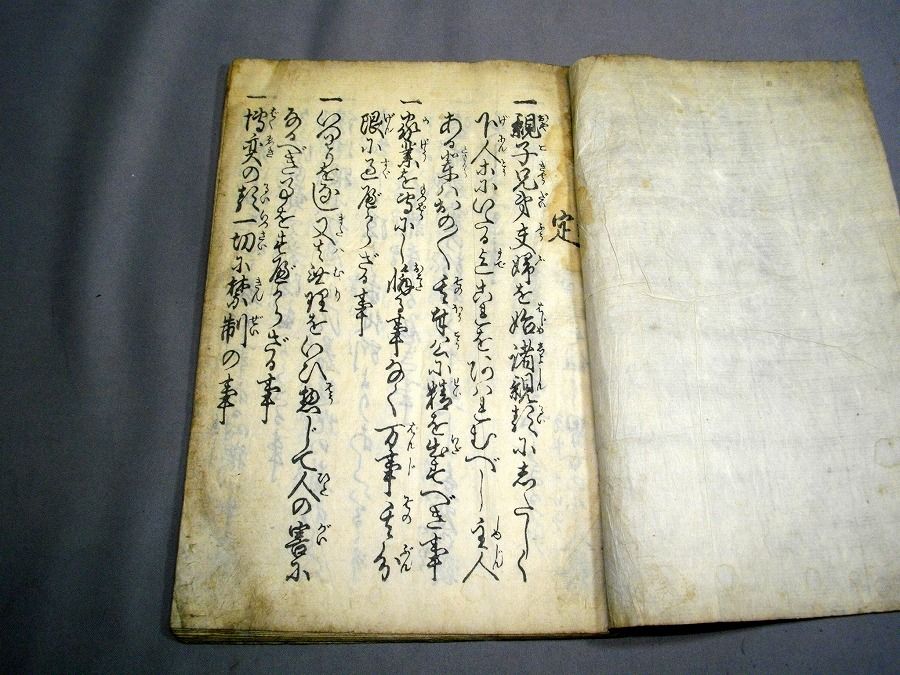 定
一親子兄弟夫婦を始諸親類にしたしく
下人等にいたる迄これをあはれむべし主人
ある輩はおの〱其奉公に精を出すべき事
一家業を専にし懈る事なく万事其分
限に過べからざる事
一いつはりをなし又は無理をいひ惣じて人の害に
なるべき事をすべからざる事
一博奕の類一切に禁制の事